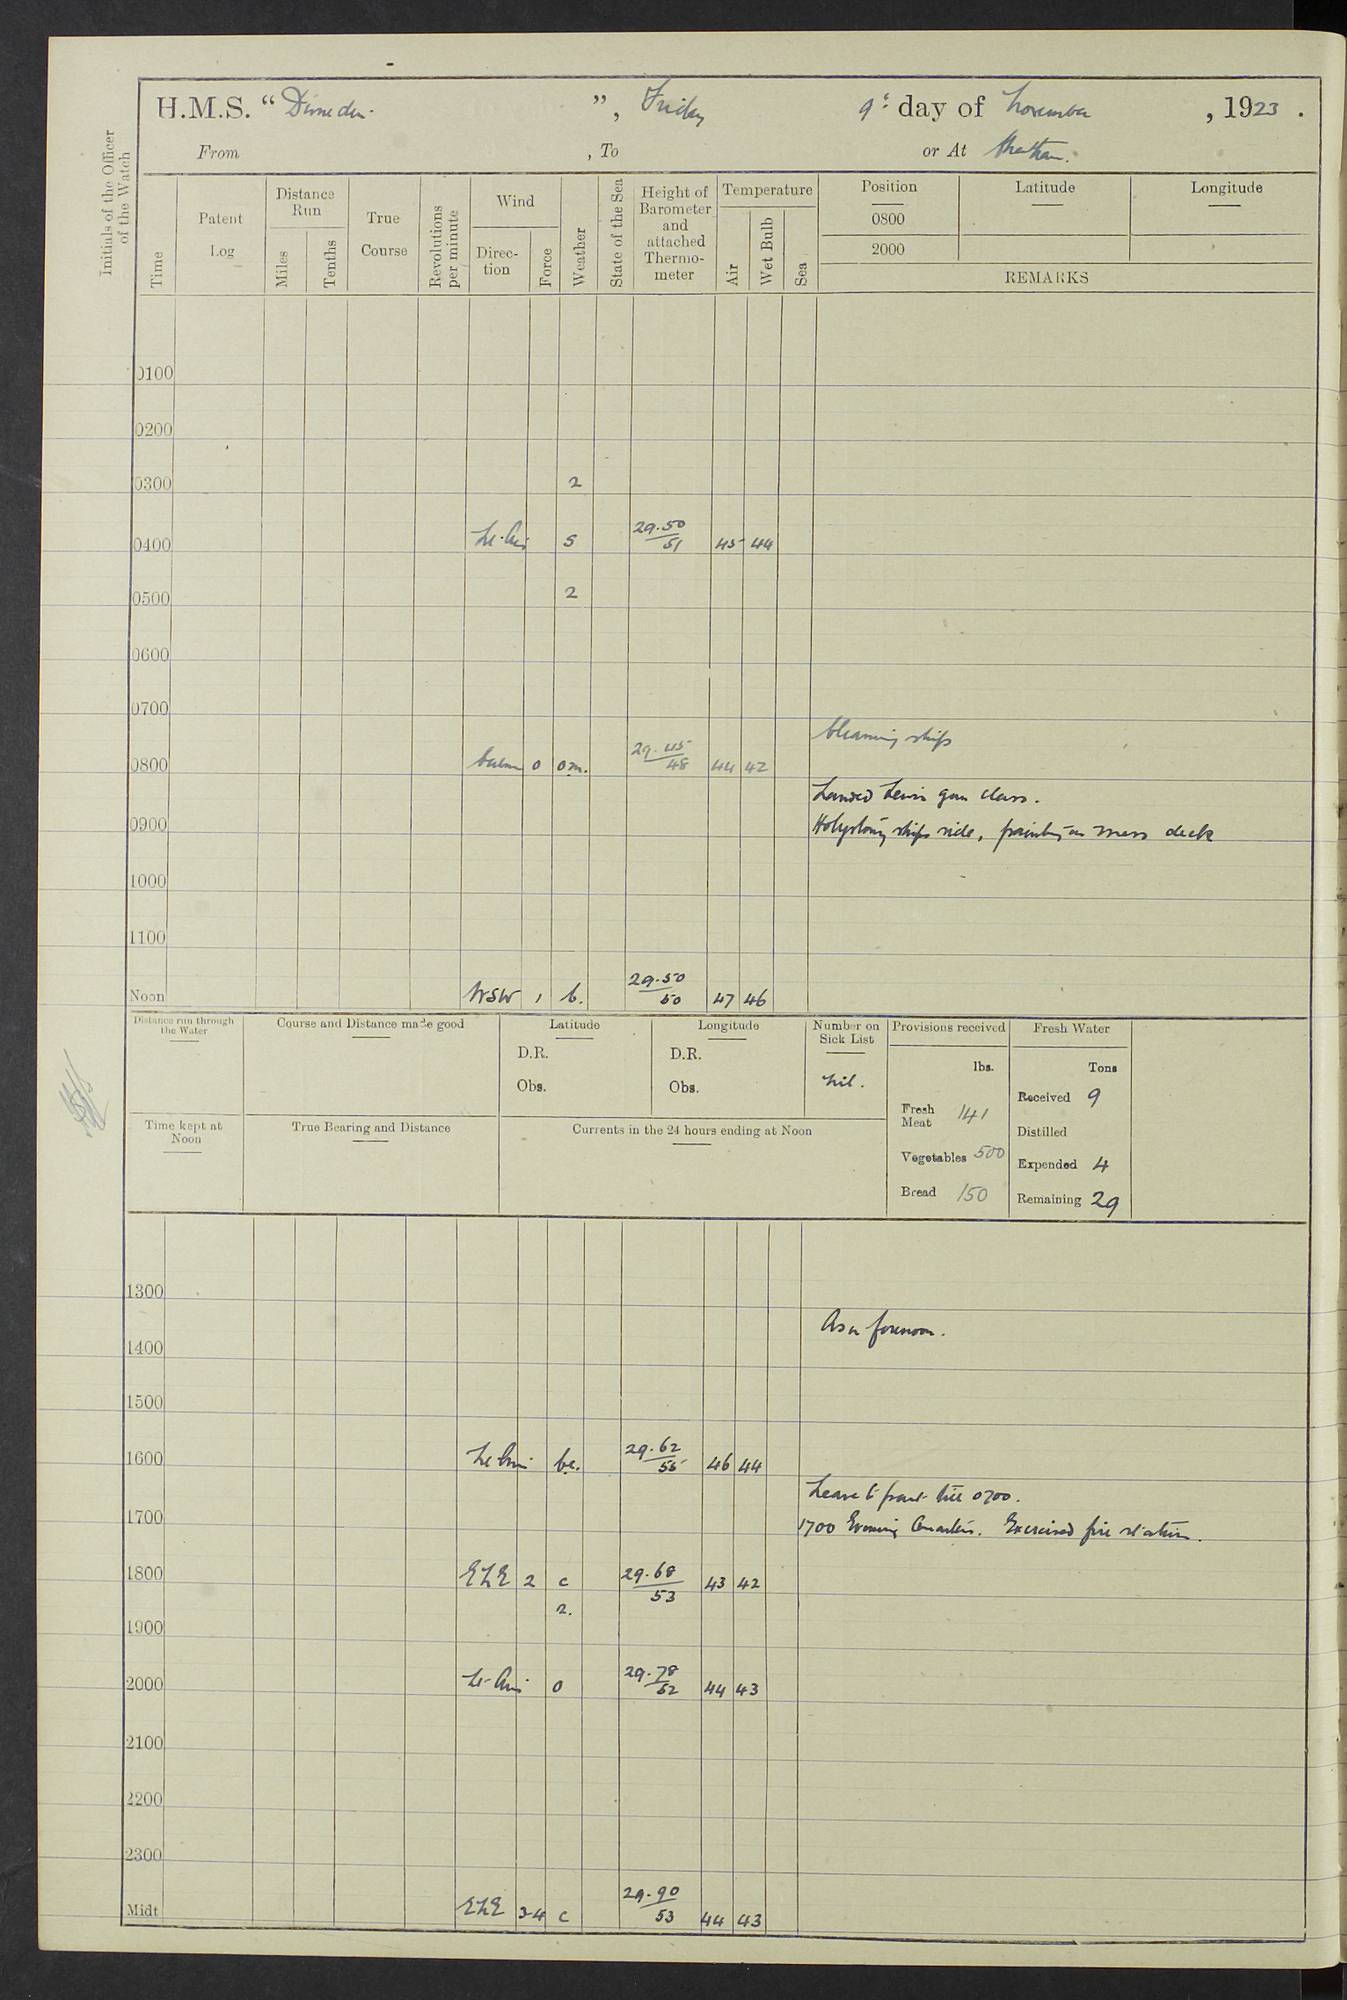 H.M.S. “ Dunedin ”, Friday 9th day of November, 1923.
From , To or At Chatham.
Initials of the Officer of the Watch
Time
Patent Log
Distance Run
Miles
Tenths
True Course
Revolutions per minute
Wind
Direction
Force
Weather
State of the Sea
Height of Barometer and attached Thermometer
Temperature
Air
Wet Bulb
Sea
Position
Latitude
Longitude
0800
2000
REMARKS
0100
0200
0300 2
0400 Lt. Airs 5 29.50 51 45 44
0500 2
0600
0700
Cleaning ship
0800 Calm 0 om. 29.45 48 44 42
Landed Lewis gun class.
0900 Holystoning ships side, painting on mess deck
1000
1100
Noon WSW 1 b. 29.50 50 47 46
Distance run through the Water
Course and Distance made good
Latitude
D.R.
Obs.
Longitude
D.R.
Obs.
Number on Sick List
Nil.
Provisions received
lbs.
Fresh Meat 141
Vegetables 500
Bread 150
Fresh Water
Tons
Received 9
Distilled
Expended 4
Remaining 29
Time kept at Noon
True Bearing and Distance
Currents in the 24 hours ending at Noon
1300
As in forenoon.
1400
1500
1600 Lt Airs bc. 29.62 55 46 44
Leave to part till 0700.
1700 1700 Evening Quarters. Exercised fire stations.
1800 ENE 2 c 29.68 53 43 42
2.
1900
2000 Lt. Airs 0 29.78 52 44 43
2100
2200
2300
Midt ENE 3-4 c 29.90 53 44 43